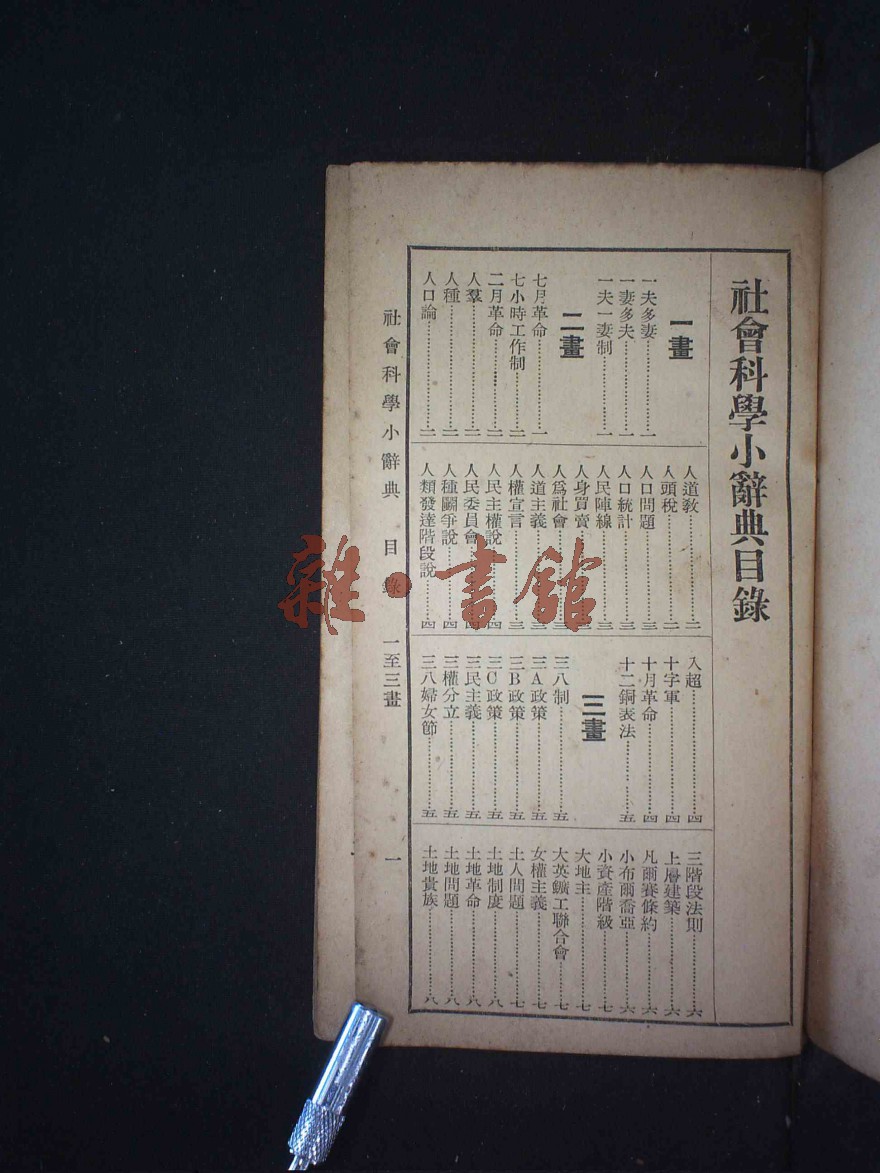 社會科學小辭典目錄
一畫
一夫多妻……一
一妻多夫……一
一夫一妻制……一
二畫
七月革命……一
七小時工作制……二
二月革命……二
人羣……二
人種……二
人口論……二
人道教……二
人頭稅……二
人口問題……三
人口統計……三
人民陣線……三
人身買賣
人爲社會……三
人道主義……三
人權宣言……三
人民主權說……四
人民委員會……四
人種鬭爭說……四
人類發達階段說……四
入超……四
十字軍……四
十月革命……四
十二銅表法……五
三畫
三八制……五
三A政策……五
三B政策……五
三C政策……五
三民主義……五
三權分立……五
三八婦女節……五
三階段法則……六
上層建築……六
凡爾賽條約……六
小布爾喬亞……六
小資產階級……七
大地主……七
大英鑛工聯合會……七
女權主義……七
土人問題……七
土地制度……八
土地革命……八
土地問題……八
土地貴族……八
社會科學小辭典 目錄 一至三畫 一
雜·書館